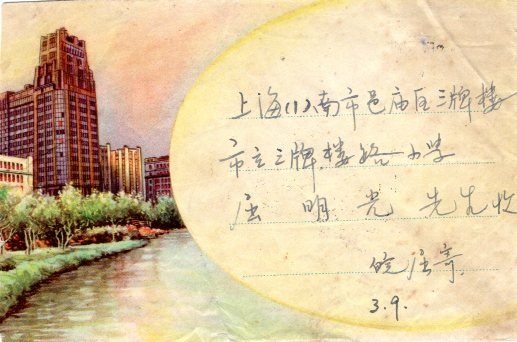 上海(1)南市邑庙区三牌楼
市立三牌楼路小学
屈明光先生收
皖屈寄
3.9.